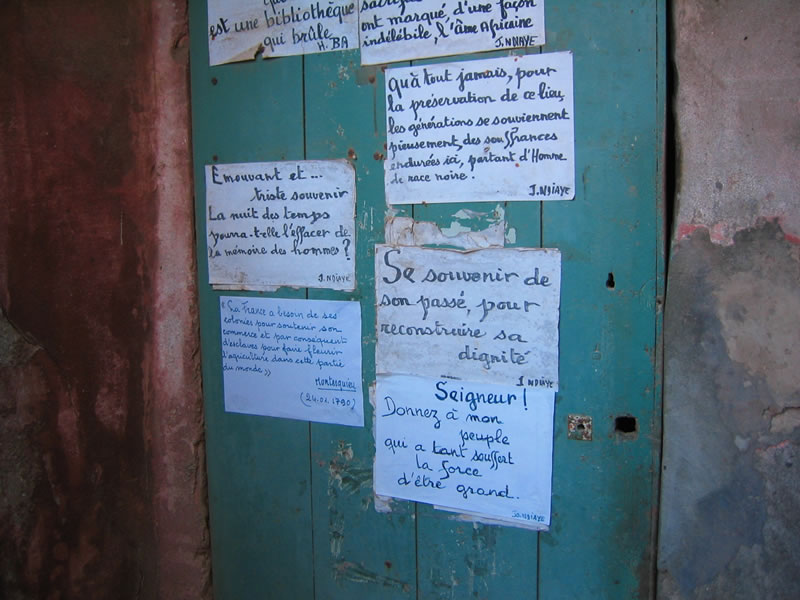 est une bibliothèque
qui brûle
H. BA
ont marqué, d'une façon
indélébile, l'âme Africaine
J. NDIAYE
Qu'à tout jamais, pour
la préservation de ce lieu,
les générations se souviennent
pieusement, des souffrances
endurées ici, partant d'Homme
de race noire.
J. NDIAYE
Emouvant et...
triste souvenir
La nuit des temps
pourra-t-elle l'effacer de
la mémoire des hommes ?
J. NDIAYE
Se souvenir de
son passé, pour
reconstruire sa
dignité
J NDIAYE
« La France a besoin de ses
colonies pour soutenir son
commerce et par conséquent
d'esclaves pour faire fleurir
l'agriculture dans cette partie
du monde »
Montesquieu
(24.01.1790)
Seigneur !
Donnez à mon
peuple
qui a tant souffert
la force
d'être grand.
Jo. NDIAYE